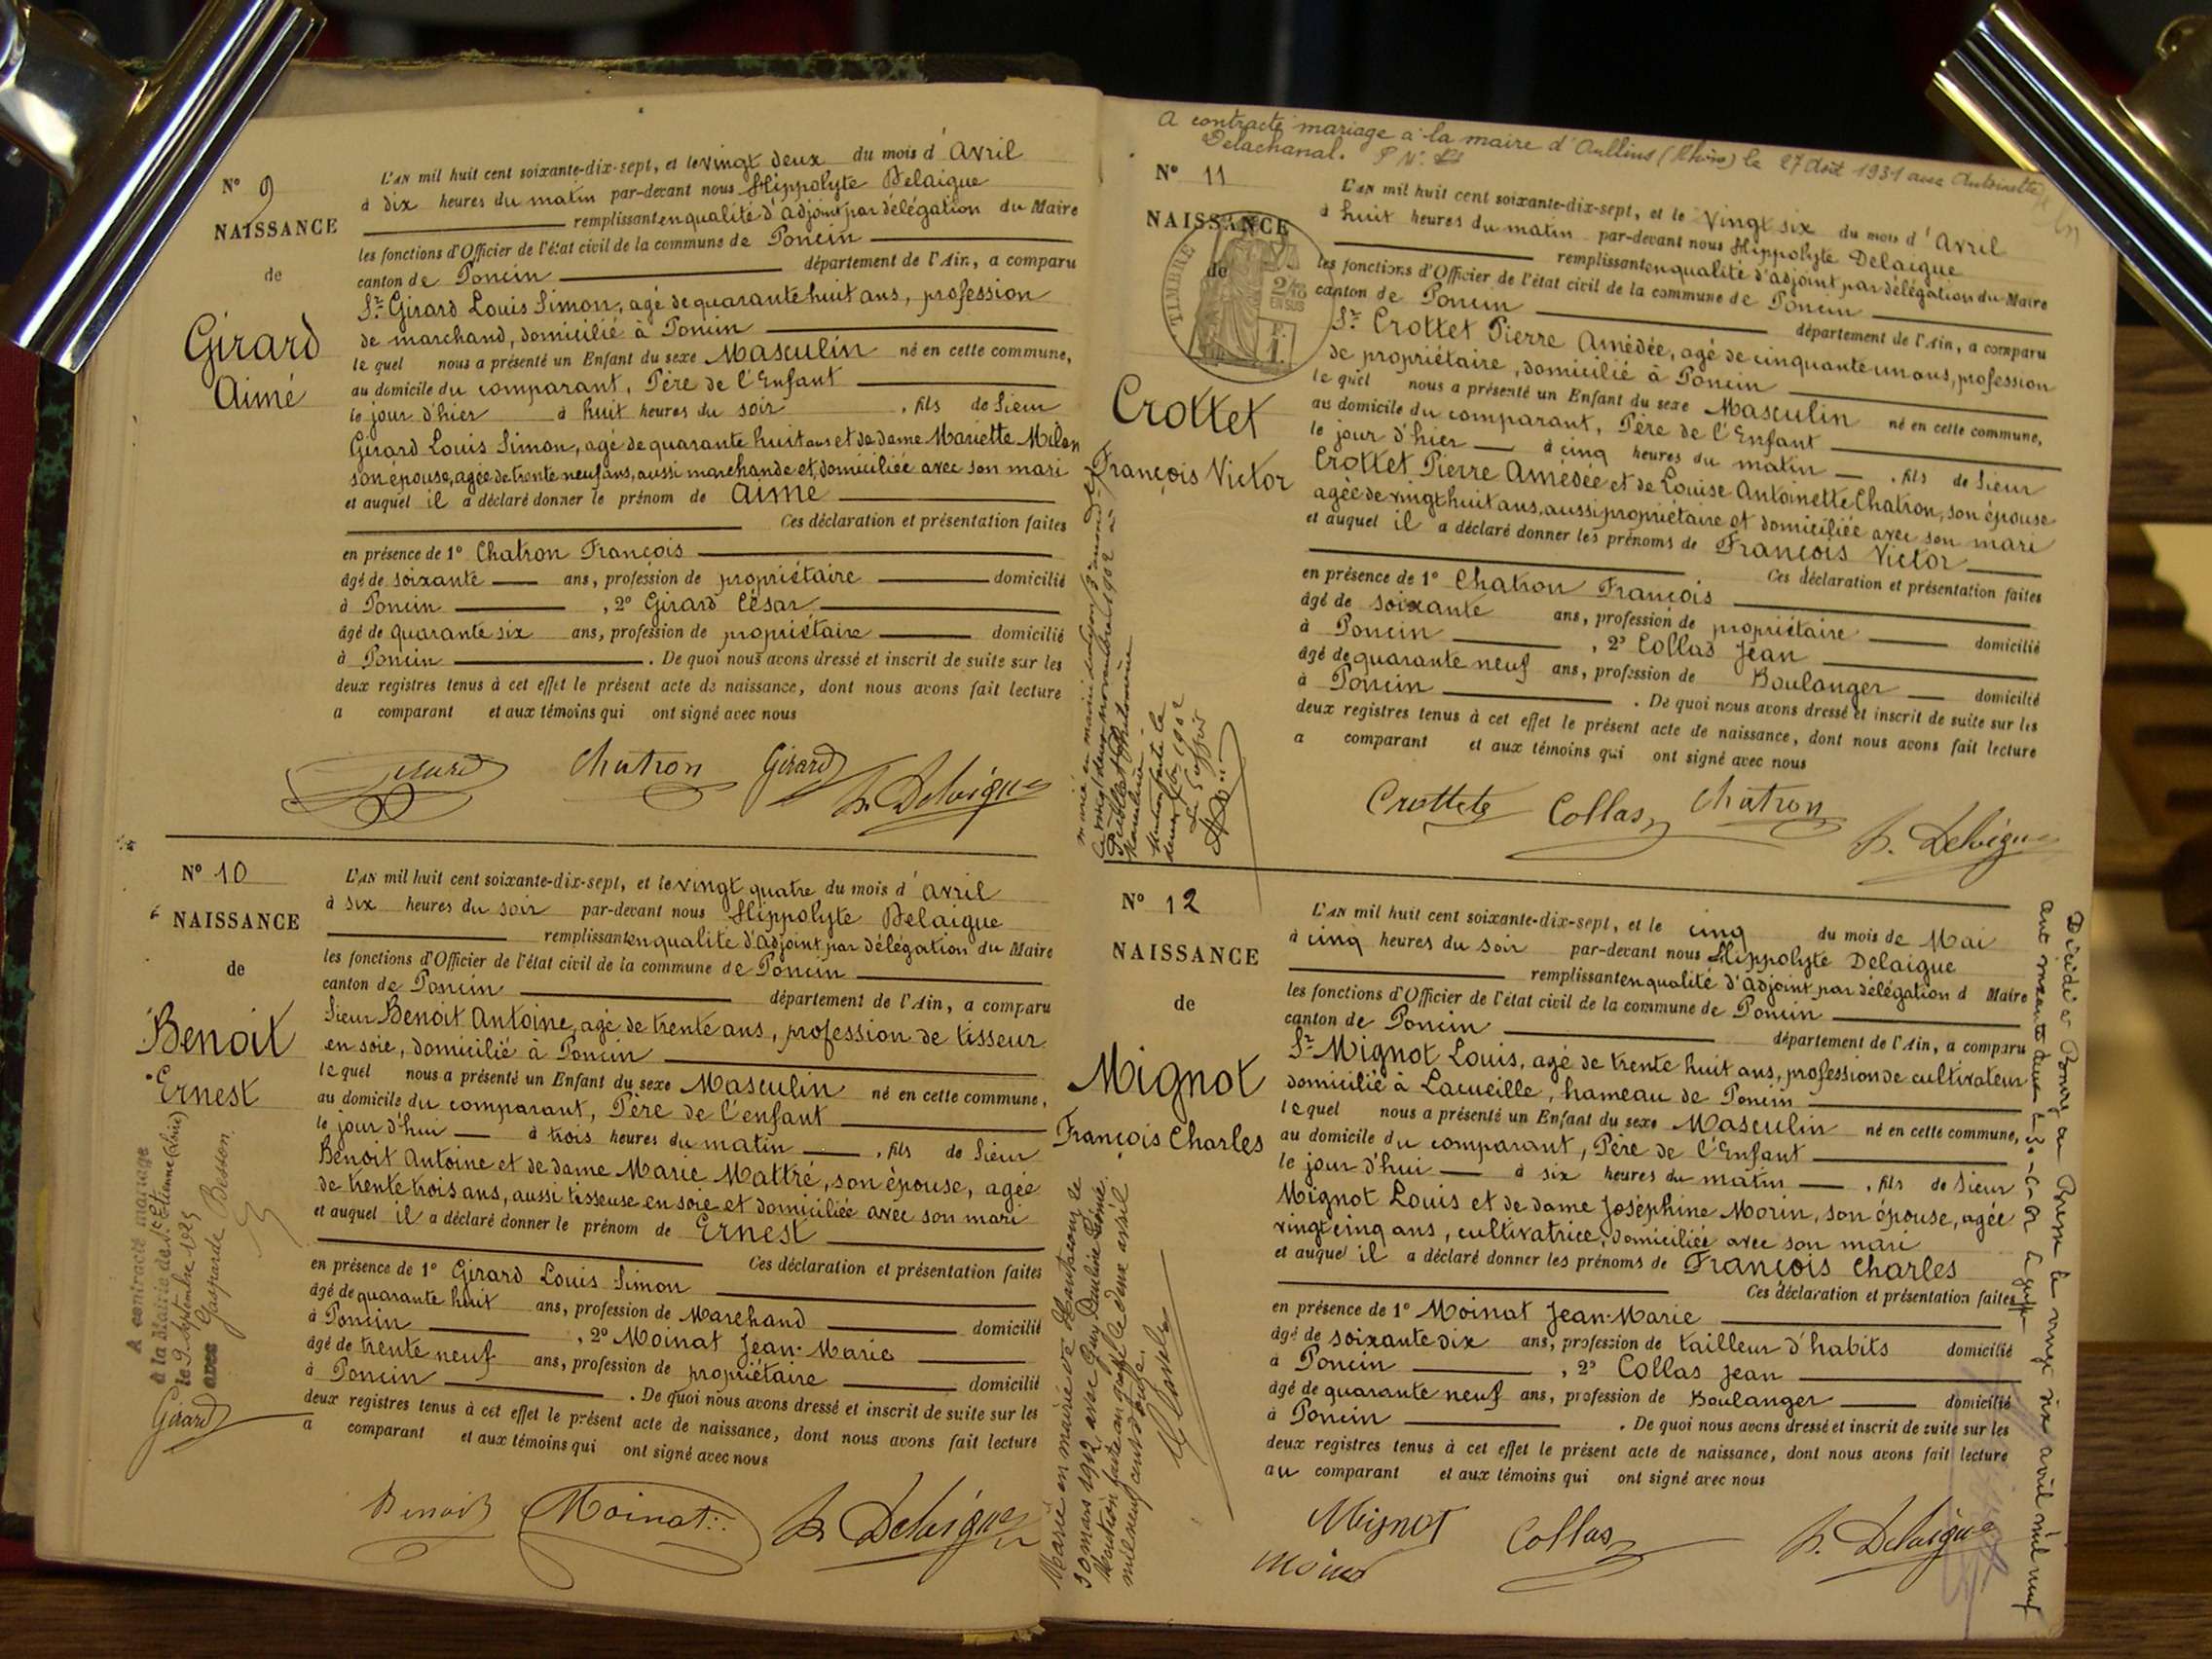 N° 9
NAISSANCE
de
Girard
Aimé
L'AN mil huit cent soixante-dix-sept, et le vingt deux du mois d'Avril
à dix heures du matin par-devant nous Hippolyte Delaigue
remplissant en qualité d'adjoint par délégation du Maire
les fonctions d'Officier de l'état civil de la commune de Poncin
canton de Poncin département de l'Ain, a comparu
Sr Girard Louis Simon, agé de quarante huit ans, profession
de marchand, domicilié à Poncin
le quel nous a présenté un Enfant du sexe Masculin né en cette commune,
au domicile du comparant, Père de l'Enfant
le jour d'hier à huit heures du soir, fils de Sieur
Girard Louis Simon, agé de quarante huit ans et de dame Mariette Milon
son épouse, agée de trente neuf ans, aussi marchande et domiciliée avec son mari
et auquel il a déclaré donner le prénom de Aimé
Ces déclaration et présentation faites
en présence de 1° Chatron François
âgé de soixante ans, profession de propriétaire domicilié
à Poncin, 2° Girard César
âgé de quarante six ans, profession de propriétaire domicilié
à Poncin. De quoi nous avons dressé et inscrit de suite sur les
deux registres tenus à cet effet le présent acte de naissance, dont nous avons fait lecture
a comparant et aux témoins qui ont signé avec nous
Chatron Girard h. Delaigue
N° 10
NAISSANCE
de
Benoit
Ernest
A contracté mariage
à la Mairie de St Etienne (Loire)
le 9 septembre 1925
avec Gasparde Besson
Girard
L'AN mil huit cent soixante-dix-sept, et le vingt quatre du mois d'avril
à six heures du soir par-devant nous Hippolyte Delaigue
remplissant en qualité d'adjoint par délégation du Maire
les fonctions d'Officier de l'état civil de la commune de Poncin
canton de Poncin département de l'Ain, a comparu
Sieur Benoit Antoine, agé de trente ans, profession de tisseur
en soie, domicilié à Poncin
le quel nous a présenté un Enfant du sexe Masculin né en cette commune,
au domicile du comparant, Père de l'enfant
le jour d'hui à trois heures du matin, fils de Sieur
Benoit Antoine et de dame Marie Mattré, son épouse, agée
de trente trois ans, aussi tisseuse en soie et domiciliée avec son mari
et auquel il a déclaré donner le prénom de Ernest
Ces déclaration et présentation faites
en présence de 1° Girard Louis Simon
âgé de quarante huit ans, profession de Marchand domicilié
à Poncin, 2° Moinat Jean-Marie
âgé de trente neuf ans, profession de propriétaire domicilié
à Poncin. De quoi nous avons dressé et inscrit de suite sur les
deux registres tenus à cet effet le présent acte de naissance, dont nous avons fait lecture
a comparant et aux témoins qui ont signé avec nous
Benoit Moinat h. Delaigue
A contracté mariage à la maire d'Oullins (Rhône) le 27 Août 1931 avec Antoinette
Delachanal.
N° 11
NAISSANCE
de
TIMBRE
2/10
EN SUS
Crottet
François Victor
Mention faite le
L'AN mil huit cent soixante-dix-sept, et le Vingt six du mois d'Avril
à huit heures du matin par-devant nous Hippolyte Delaigue
remplissant en qualité d'adjoint par délégation du Maire
les fonctions d'Officier de l'état civil de la commune de Poncin
canton de Poncin département de l'Ain, a comparu
Sr Crottet Pierre Amédée, agé de cinquante un ans, profession
de propriétaire, domicilié à Poncin
le quel nous a présenté un Enfant du sexe Masculin né en cette commune,
au domicile du comparant, Père de l'Enfant
le jour d'hier à cinq heures du matin, fils de Sieur
Crottet Pierre Amédée et de Louise Antoinette Chatron, son épouse
agée de vingt huit ans, aussi propriétaire et domiciliée avec son mari
et auquel il a déclaré donner les prénoms de François Victor
Ces déclaration et présentation faites
en présence de 1° Chatron François
âgé de soixante ans, profession de propriétaire domicilié
à Poncin, 2° Collas Jean
âgé de quarante neuf ans, profession de Boulanger domicilié
à Poncin. De quoi nous avons dressé et inscrit de suite sur les
deux registres tenus à cet effet le présent acte de naissance, dont nous avons fait lecture
a comparant et aux témoins qui ont signé avec nous
Collas Chatron h. Delaigue
N° 12
NAISSANCE
de
Mignot
François Charles
Marié en mairie de
30 mars 1912 avec
Mention faite au greffe le deux avril
mil neuf cent douze.
L'AN mil huit cent soixante-dix-sept, et le cinq du mois de Mai
à cinq heures du soir par-devant nous Hippolyte Delaigue
remplissant en qualité d'adjoint par délégation d Maire
les fonctions d'Officier de l'état civil de la commune de Poncin
canton de Poncin département de l'Ain, a comparu
Sr Mignot Louis, agé de trente huit ans, profession de cultivateur
domicilié à Lacueille, hameau de Poncin
le quel nous a présenté un Enfant du sexe Masculin né en cette commune,
au domicile du comparant, Père de l'Enfant
le jour d'hui à six heures du matin, fils de Sieur
Mignot Louis et de dame Joséphine Morin, son épouse, agée
vingt cinq ans, cultivatrice, domiciliée avec son mari
et auquel il a déclaré donner les prénoms de François Charles
Ces déclaration et présentation faites
en présence de 1° Moinat Jean-Marie
âgé de soixante dix ans, profession de tailleur d'habits domicilié
à Poncin, 2° Collas Jean
âgé de quarante neuf ans, profession de Boulanger domicilié
à Poncin. De quoi nous avons dressé et inscrit de suite sur les
deux registres tenus à cet effet le présent acte de naissance, dont nous avons fait lecture
au comparant et aux témoins qui ont signé avec nous
Mignot Collas h. Delaigue
Décédé à Bourg en Bresse le vingt six avril mil neuf
cent soixante deux